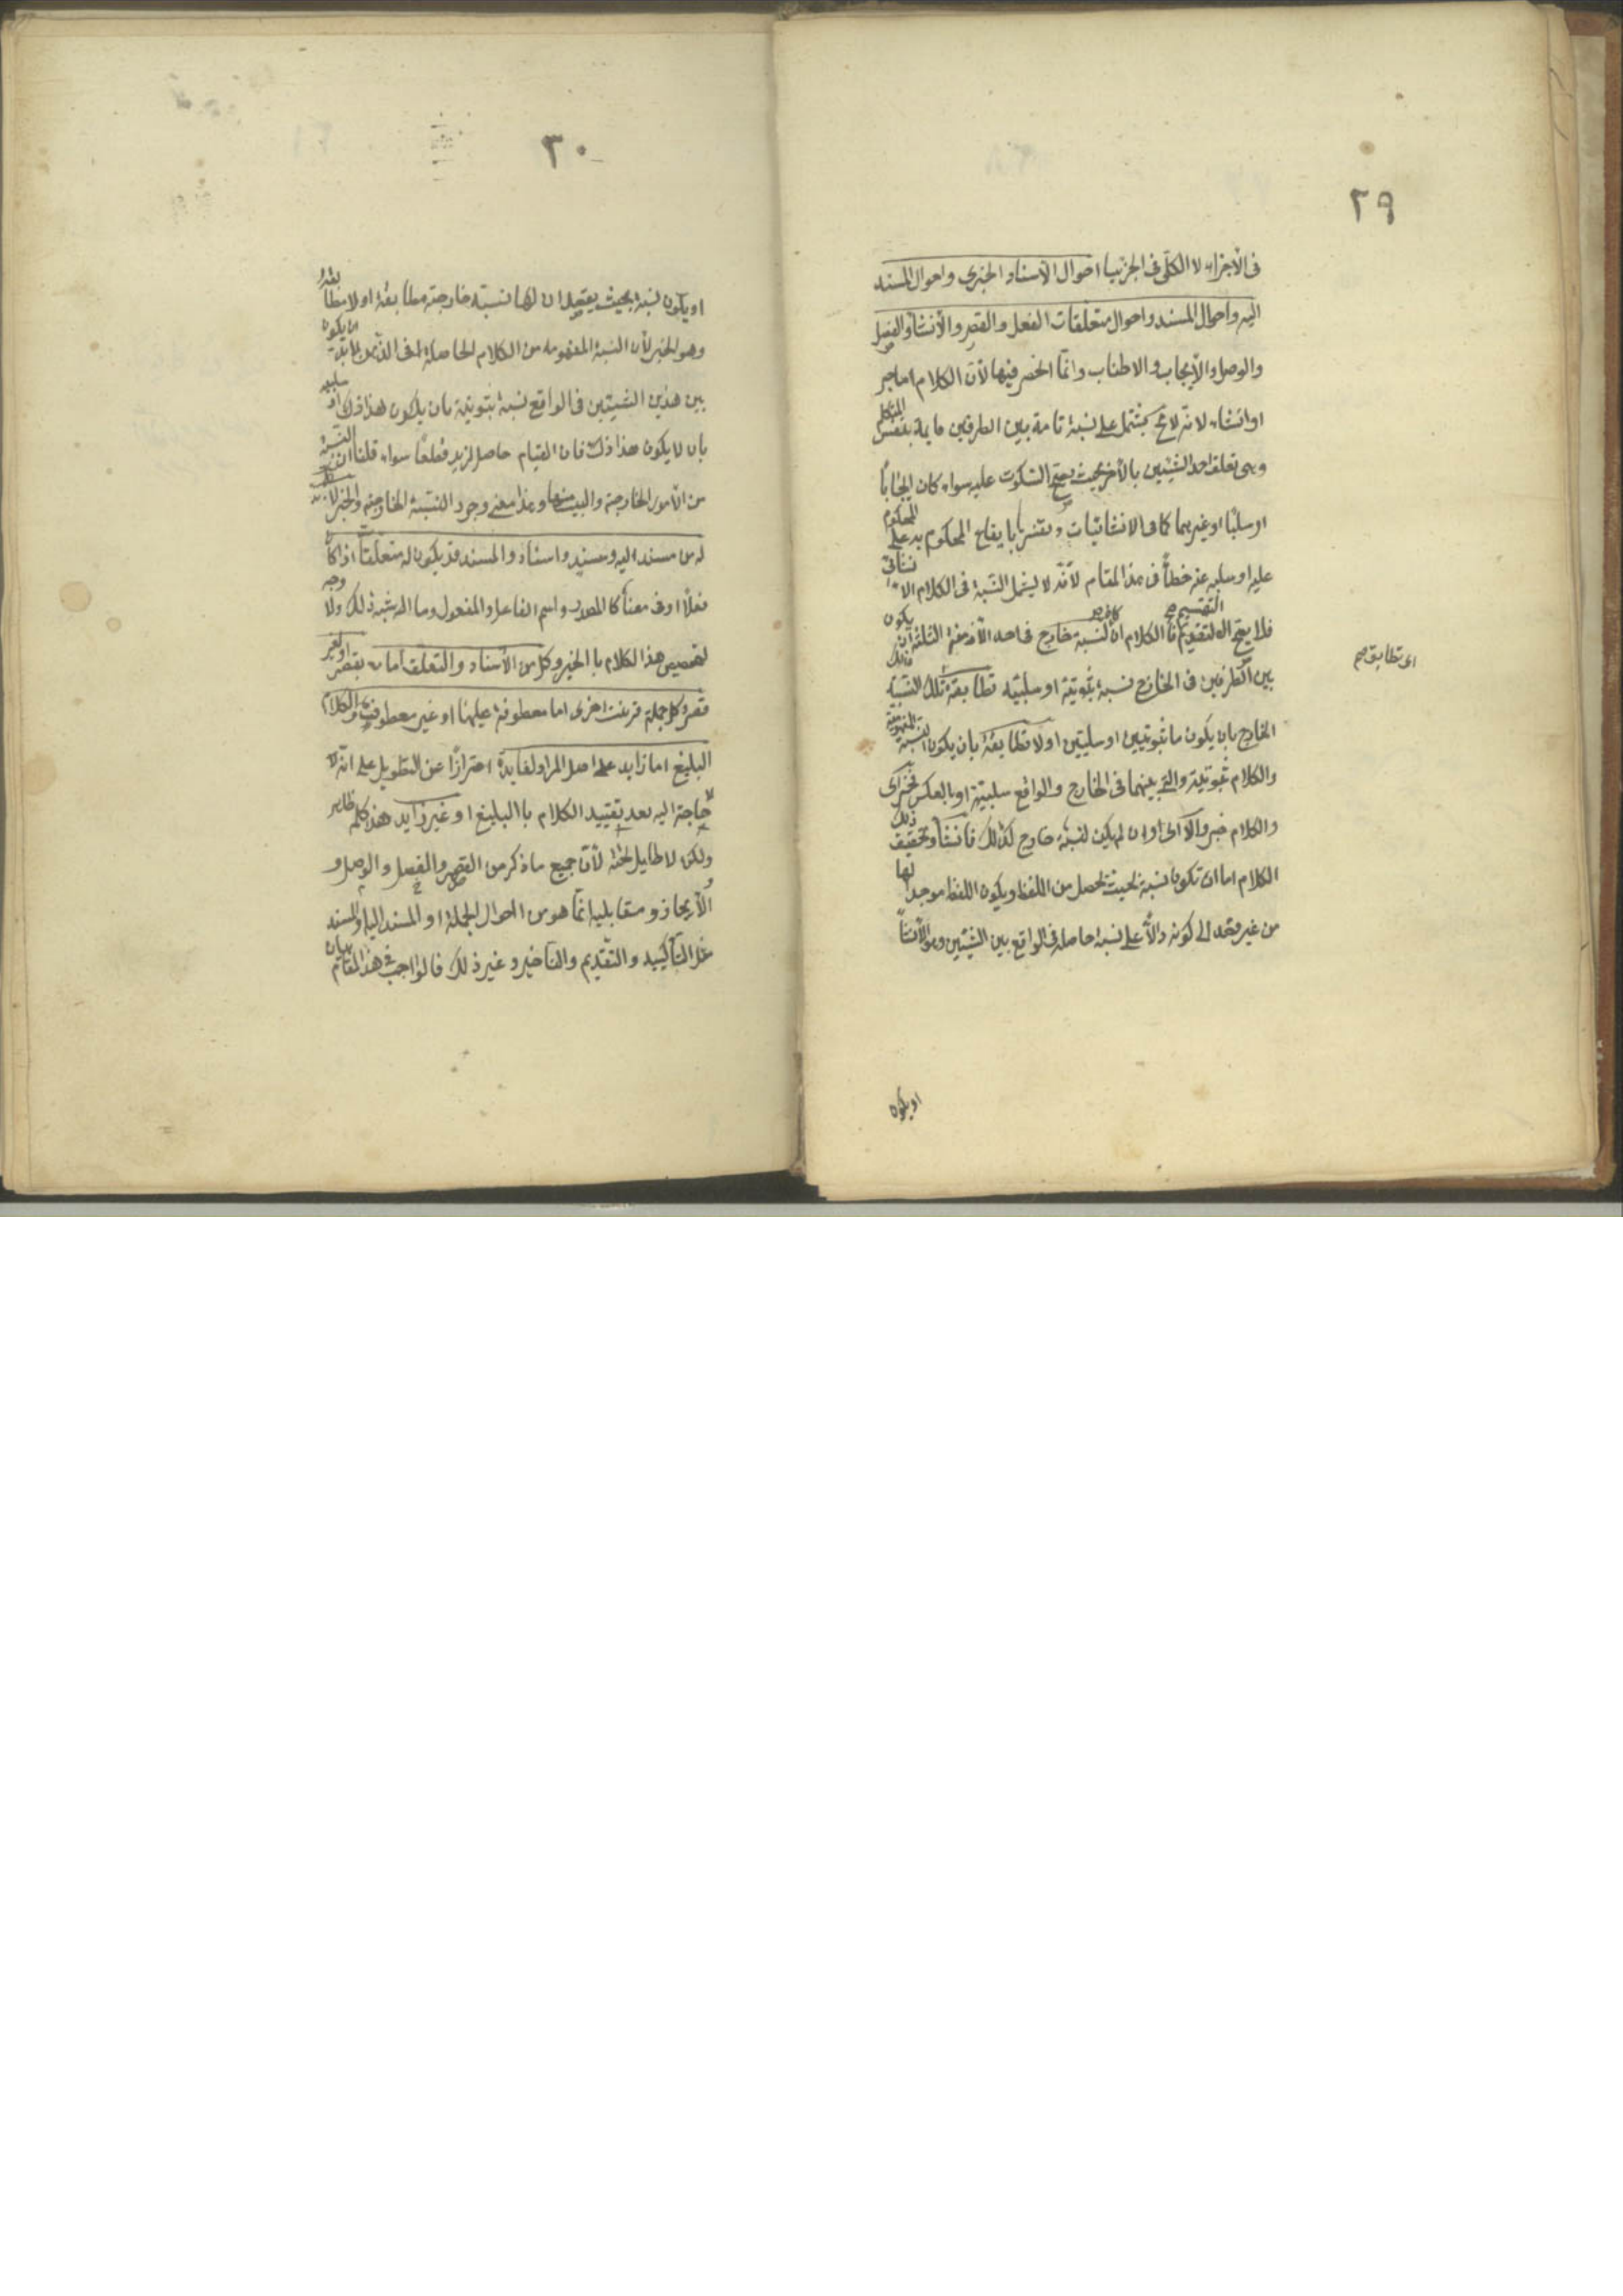 ٢٩
فى الأجزاء لا الكلّى فى الجزئيا احوال الأسناد الخبرى واحوال المسند
اليه واحوال المسند واحوال متعلّقات الفعل والقصر والأنشاء والفصل
والوصل والأيجاب والاطناب وانّما انحصر فيها لأنّ الكلام اما خبر
او انشاء لانه لا مح يشتمل على نسبة تامة بين الطرفين قايمة بنفس المتكلم
وهى تعلق احد الشيئين بالأخر بحيث يصح السّكوت عليه سواء كان ايجابًا
او سلبًا او غيرهما كما فى الانشائيات وتفسيرها بايقاع المحكوم به على المحكوم
عليه او سلبه عنه خطأ فى هذا المقام لأنّه لا يشمل النّسبة فى الكلام الانشائى
فلا يصح التقسيم فا الكلام ان كان لنسبته خارج فى احد الأزمنة الثلثة اى يكون
بين الطرفين فى الخارج نسبة ثبوتيّة او سلبيّه تطابقه تلك النسبة ذلك
اى تطابق صح
الخارج بان يكون ما ثبوتيين او سلبيين او لا تطابقه بان يكون النسبة المفهومة
والكلام ثبوتيّة والتى بينهما فى الخارج والواقع سلبيّة او بالعكس فخبر اى
والكلام خبر والاّ اى وان لم يكن لنسبته خارج كذلك فانشاء وتحقيق ذلك
الكلام اما ان تكون نسبته بحيث تحصل من اللفظ ويكون اللفظ موجدا لها
من غير قصد الى كونه دالاًّ على نسبة حاصلة فى الواقع بين الشيئين وهو الأنشاء
او يكون
٣٠
او يكون نسبته بحيث يقصد ان لها نسبته خارجته مطابقة او لا مطابقة
وهو الخبر لأن النسبة المفهومه من الكلام الحاصلة فى الذّهن لابد ان يكون
بين هذين الشيئين فى الواقع نسبة ثبوتيّة بان يكون هذا ذلك او سلبيه
بان لا يكون هذا ذلك فان القيام حاصل لزيد قطعًا سواء قلنا ان النسبة
من الأمور الخارجة وليست منها وهذا معنى وجود النسبة الخارجيّه والخبر لابد
له من مسند اليه ومسند واسناد والمسند قد يكون له متعلّقات اذا كان
فعلاً او فى معناه كالمصدر واسم الفاعل والمفعول وما اشبه ذلك ولا وجه
لتخصيص هذا الكلام بالخبر وكل من الأسناد والتعلّق اما بقصر او بغير
قصر وكل جملة قرنت اخرى اما معطوفة عليها او غير معطوفة والكلام
البليغ اما زايد على اصل المراد لفايدة احترازًا عن التطويل على انّه لا
حاجة اليه بعد تقييد الكلام باالبليغ او غير زايد هذا كله ظاهر
ولكن لا طايل تحته لأنّ جميع ما ذكر من القصر والفصل والوصل و
الأيجاز و مقابليه انّما هو من احوال الجملة او المسند اليه او المسند
مثل التأكيد والتقديم والتاخير وغير ذلك فالواجب فى هذا المقام بيان